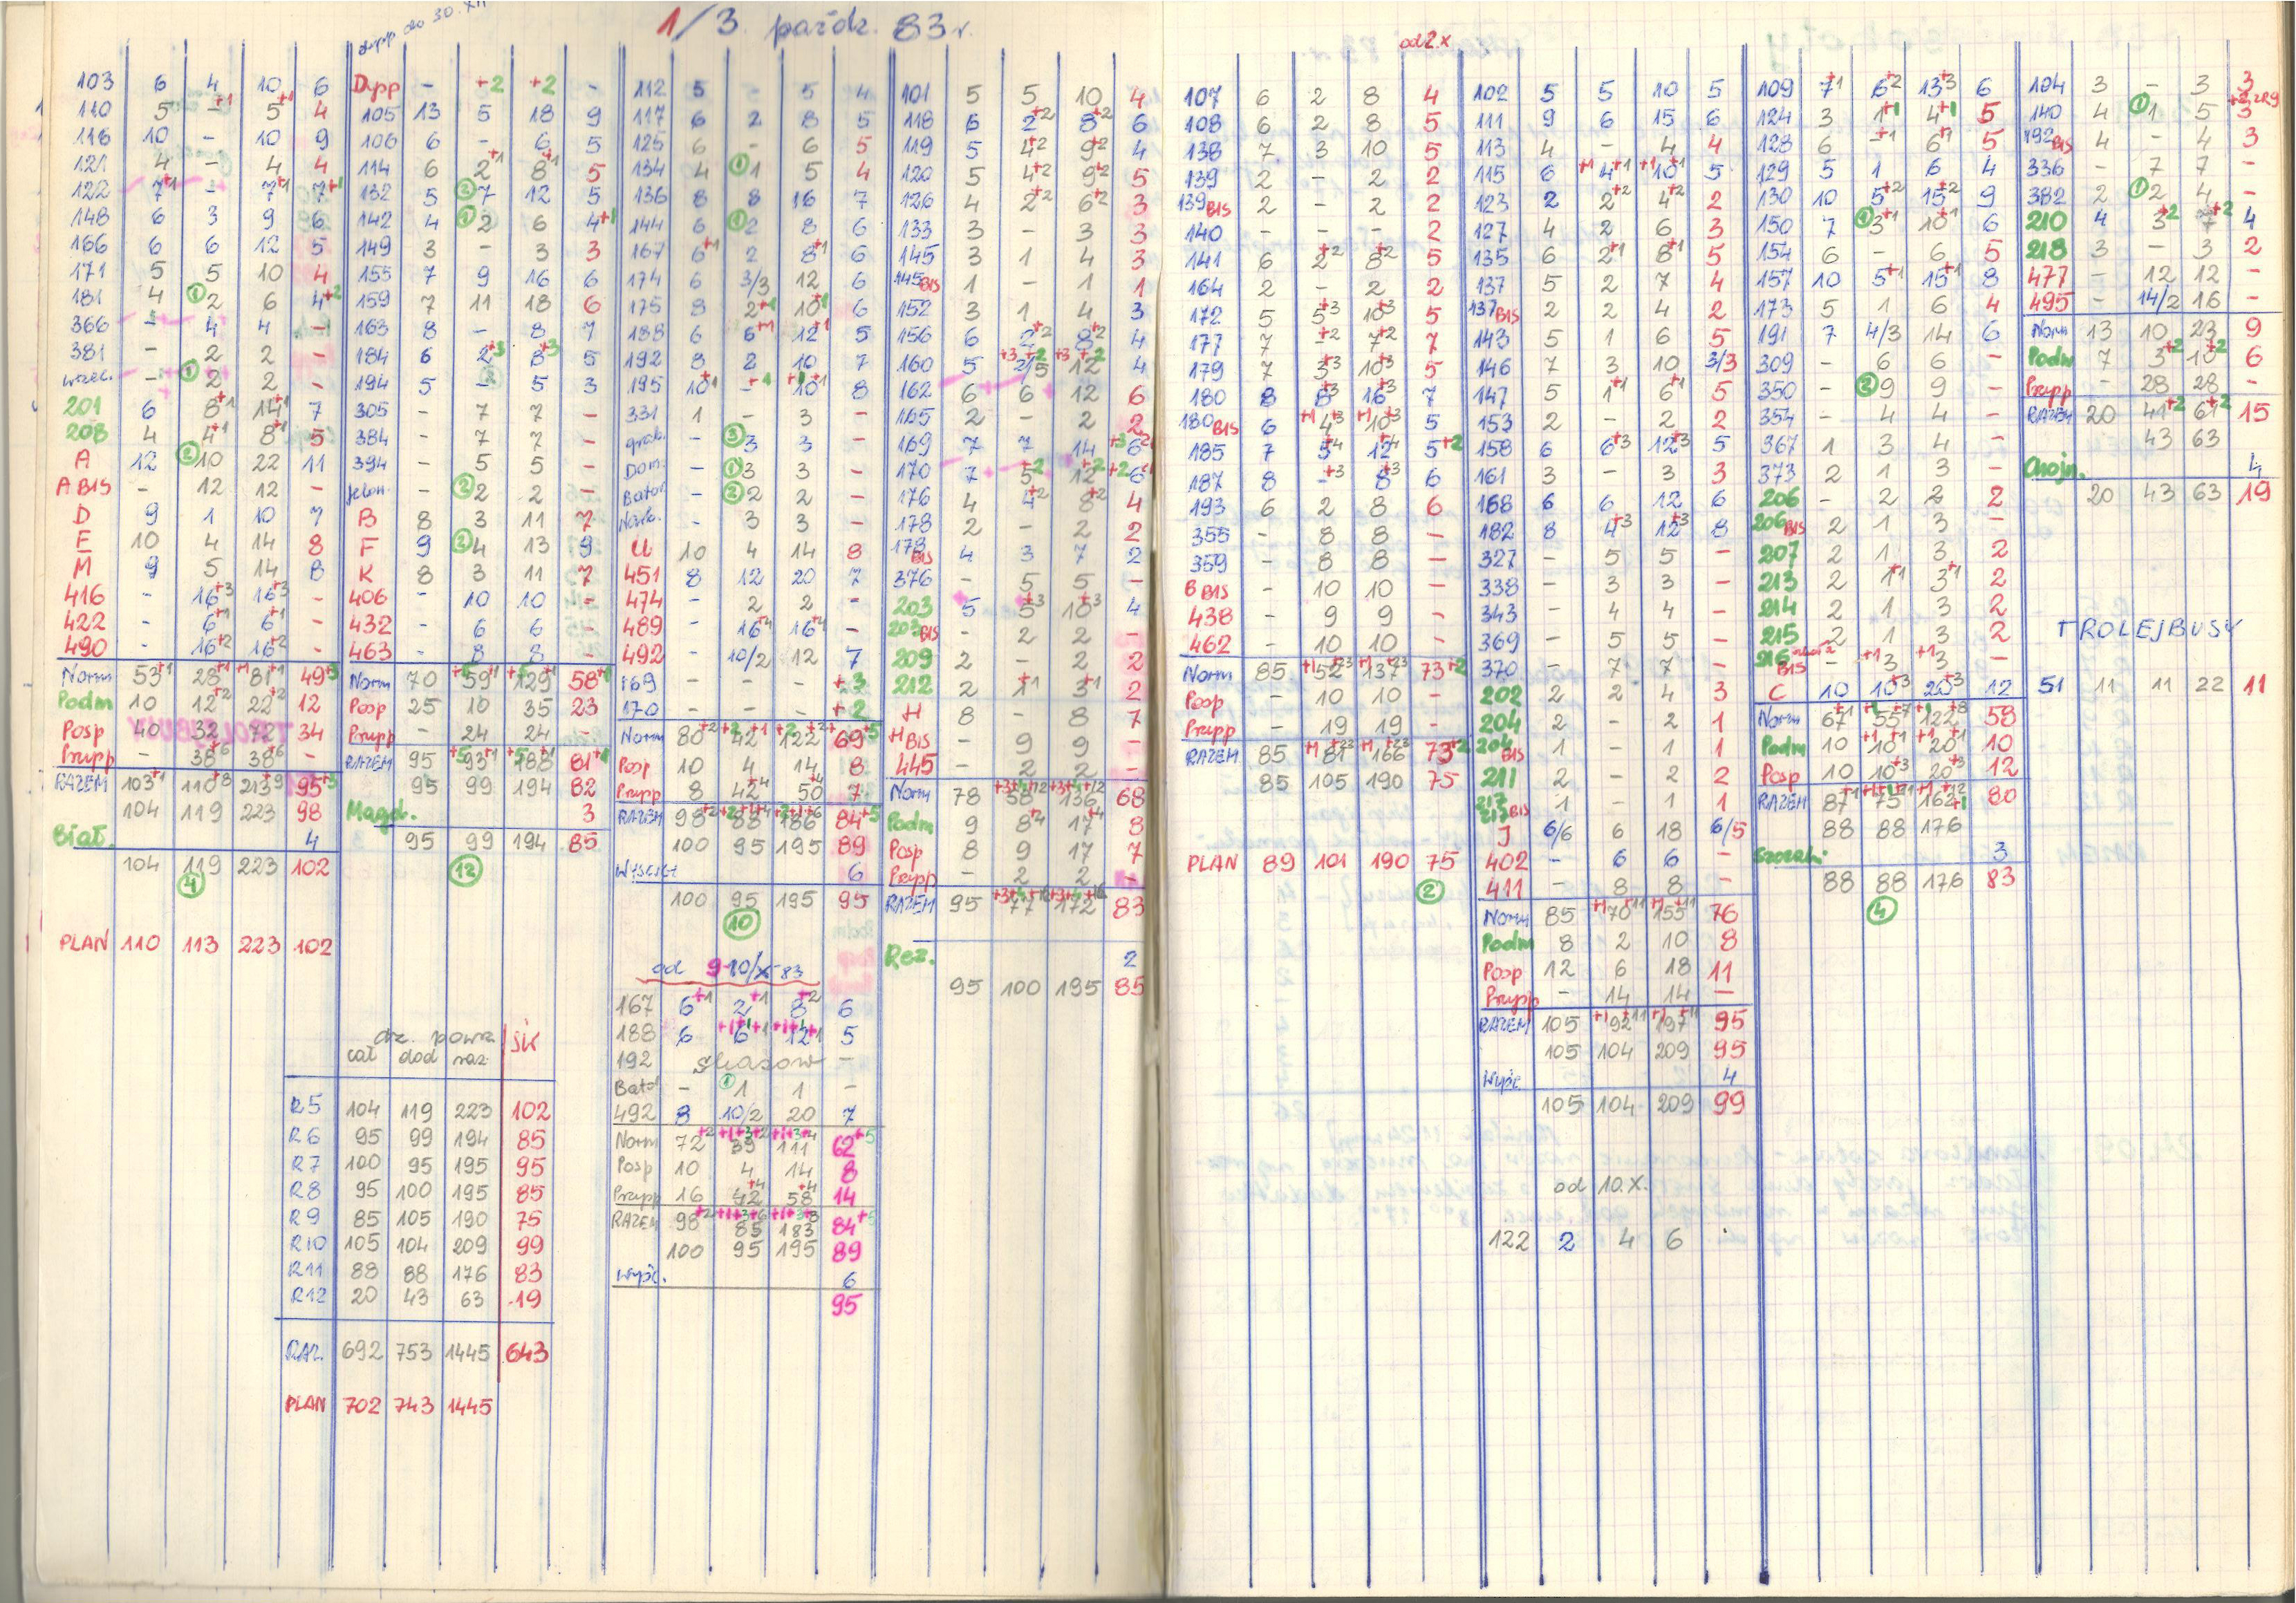 dypp do 30.XII
1/3. paźdz. 83 r.
103 6 4 10 6
110 5 -+1 5+1 4
116 10 - 10 9
121 4 - 4 4
122 7+1 - 7+1 7+1
148 6 3 9 6
166 6 6 12 5
171 5 5 10 4
181 4 ①2 6 4+2
366 - 4 4 -
381 - 2 2 -
wrzec. - ①2 2 -
201 6 8+1 14+1 7
208 4 4+1 8+1 5
A 12 ②10 22 11
A BIS - 12 12 -
D 9 1 10 7
E 10 4 14 8
M 9 5 14 8
416 - 16+3 16+3 -
422 - 6+1 6+1 -
490 - 16+2 16+2 -
Norm 53+1 28+1 81+1 49+3
Podm 10 12+2 22+2 12
Posp 40 32 72 34
Przypp - 38+6 38+6 -
RAZEM 103+1 110+8 213+9 95+3
104 119 223 98
Biał. 4
104 119 223 102
④
PLAN 110 113 223 102
Dypp - +2 +2 -
105 13 5 18 9
106 6 - 6 5
114 6 2+1 8+1 5
132 5 ②7 12 5
142 4 ①2 6 4+1
149 3 - 3 3
155 7 9 16 6
159 7 11 18 6
163 8 - 8 7
184 6 2+3 8+3 5
194 5 - 5 3
305 - 7 7 -
384 - 7 7 -
394 - 5 5 -
Jelon. - ②2 2 -
B 8 3 11 7
F 9 ②4 13 9
K 8 3 11 7
406 - 10 10 -
432 - 6 6 -
463 - 8 8 -
Norm 70 59 129 58+1
Posp 25 10 35 23
Przypp - 24 24 -
RAZEM 95 93 188 81+1
95 99 194 82
Magd. 3
95 99 194 85
⑫
dz. powsz
cał dod raz. ŚW
R5 104 119 223 102
R6 95 99 194 85
R7 100 95 195 95
R8 95 100 195 85
R9 85 105 190 75
R10 105 104 209 99
R11 88 88 176 83
R12 20 43 63 19
RAZ. 692 753 1445 643
PLAN 702 743 1445
112 5 - 5 4
117 6 2 8 5
125 6 - 6 5
134 4 ①1 5 4
136 8 8 16 7
144 6 ①2 8 6
167 6+1 2 8+1 6
174 6 3/3 12 6
175 8 2+1 10+1 6
188 6 6+1 12+1 5
192 8 2 10 7
195 10+1 -+1 10+1 8
331 1 - 3 -
grab. - ③3 3 -
Dom. - ①3 3 -
Bator. - ②2 2 -
Nask. - 3 3 -
U 10 4 14 8
451 8 12 20 7
474 - 2 2 -
489 - 16+4 16+4 -
492 - 10/2 12 7
169 - - - +3
170 - - - +2
Norm 80+2 42 122 69+5
Posp 10 4 14 8
Przypp 8 42+4 50+4 7
RAZEM 98+2 88 186 84+5
100 95 195 89
Wyścigi 6
100 95 195 95
⑩
od 9-10/X-83
167 6+1 2+1 8+2 6
188 6 6 12 5
192 skasow -
Bator - ①1 1 -
492 8 10/2 20 7
Norm 72+2 39 111 62+5
Posp 10 4 14 8
Przypp 16 42+4 58+4 14
RAZEM 98+2 85 183 84+5
100 95 195 89
Wyśc. 6
95
101 5 5 10 4
118 6 2+2 8+2 6
119 5 4+2 9+2 4
120 5 4+2 9+2 5
126 4 2+2 6+2 3
133 3 - 3 3
145 3 1 4 3
145BIS 1 - 1 1
152 3 1 4 3
156 6 2+2 8+2 4
160 5 2/5 12 4
162 6 6 12 6
165 2 - 2 2
169 7 7 14 6
170 7 5+2 12+2 6
176 4 4+2 8+2 4
178 2 - 2 2
178BIS 4 3 7 2
376 - 5 5 -
203 5 5+3 10+3 4
203BIS - 2 2 -
209 2 - 2 2
212 2 1+1 3+1 2
H 8 - 8 7
H BIS - 9 9 -
445 - 2 2 -
Norm 78 58 136 68
Podm 9 8+4 17+4 8
Posp 8 9 17 7
Przypp - 2 2 -
RAZEM 95 77 172 83
Rez. 2
95 100 195 85
od 2.X
107 6 2 8 4
108 6 2 8 5
138 7 3 10 5
139 2 - 2 2
139BIS 2 - 2 2
140 - - - 2
141 6 2+2 8+2 5
164 2 - 2 2
172 5 5+3 10+3 5
177 7 -+2 7+2 7
179 7 3+3 10+3 5
180 8 8+3 16+3 7
180BIS 6 +1 4+3 +1 10+3 5
185 7 5+4 12+4 5+2
187 8 -+3 8+3 6
193 6 2 8 6
355 - 8 8 -
359 - 8 8 -
B BIS - 10 10 -
438 - 9 9 -
462 - 10 10 -
Norm 85 +1 52+23 +1 137+23 73+2
Posp - 10 10 -
Przypp - 19 19 -
RAZEM 85 +1 81+23 +1 166+23 73+2
85 105 190 75
PLAN 89 101 190 75
②
102 5 5 10 5
111 9 6 15 6
113 4 - 4 4
115 6 +1 4+1 +1 10+1 5
123 2 2+2 4+2 2
127 4 2 6 3
135 6 2+1 8+1 5
137 5 2 7 4
137BIS 2 2 4 2
143 5 1 6 5
146 7 3 10 3/3
147 5 1+1 6+1 5
153 2 - 2 2
158 6 6+3 12+3 5
161 3 - 3 3
168 6 6 12 6
182 8 4+3 12+3 8
327 - 5 5 -
338 - 3 3 -
343 - 4 4 -
369 - 5 5 -
370 - 7 7 -
202 2 2 4 3
204 2 - 2 1
204BIS 1 - 1 1
211 2 - 2 2
217BIS 1 - 1 1
J 6/6 6 18 6/5
402 - 6 6 -
411 - 8 8 -
Norm 85 +1 70+11 +1 155+11 76
Podm 8 2 10 8
Posp 12 6 18 11
Przypp - 14 14 -
RAZEM 105 +1 92+11 +1 197+11 95
105 104 209 95
Wyśc. 4
105 104 209 99
od 10.X.
122 2 4 6
109 7+1 6+2 13+3 6
124 3 1+1 4+1 5
128 6 -+1 6+1 5
129 5 1 6 4
130 10 5+2 15+2 9
150 7 ①3+1 10+1 6
154 6 - 6 5
157 10 5+1 15+1 8
173 5 1 6 4
191 7 4/3 14 6
309 - 6 6 -
350 - ②9 9 -
354 - 4 4 -
367 1 3 4 -
373 2 1 3 -
206 - 2 2 2
206BIS 2 1 3 -
207 2 1 3 2
213 2 1+1 3+1 2
214 2 1 3 2
215 2 1 3 2
216BIS - +1 3 +1 3 -
C 10 10+3 20+3 12
Norm 67+1 55 122 58
Podm 10 10+1 20+1 10
Posp 10 10+3 20+3 12
RAZEM 87+1 75 162 80
88 88 176
Szczaki 3
88 88 176 83
④
104 3 - 3 3
140 4 ①1 5 3
192BIS 4 - 4 3
336 - 7 7 -
382 2 ①2 4 -
210 4 3+2 7+2 4
218 3 - 3 2
477 - 12 12 -
495 - 14/2 16 -
Norm 13 10 23 9
Podm 7 3+2 10+2 6
Przypp - 28 28 -
RAZEM 20 41+2 61+2 15
43 63
Chojn. 4
20 43 63 19
TROLEJBUSY
51 11 11 22 11